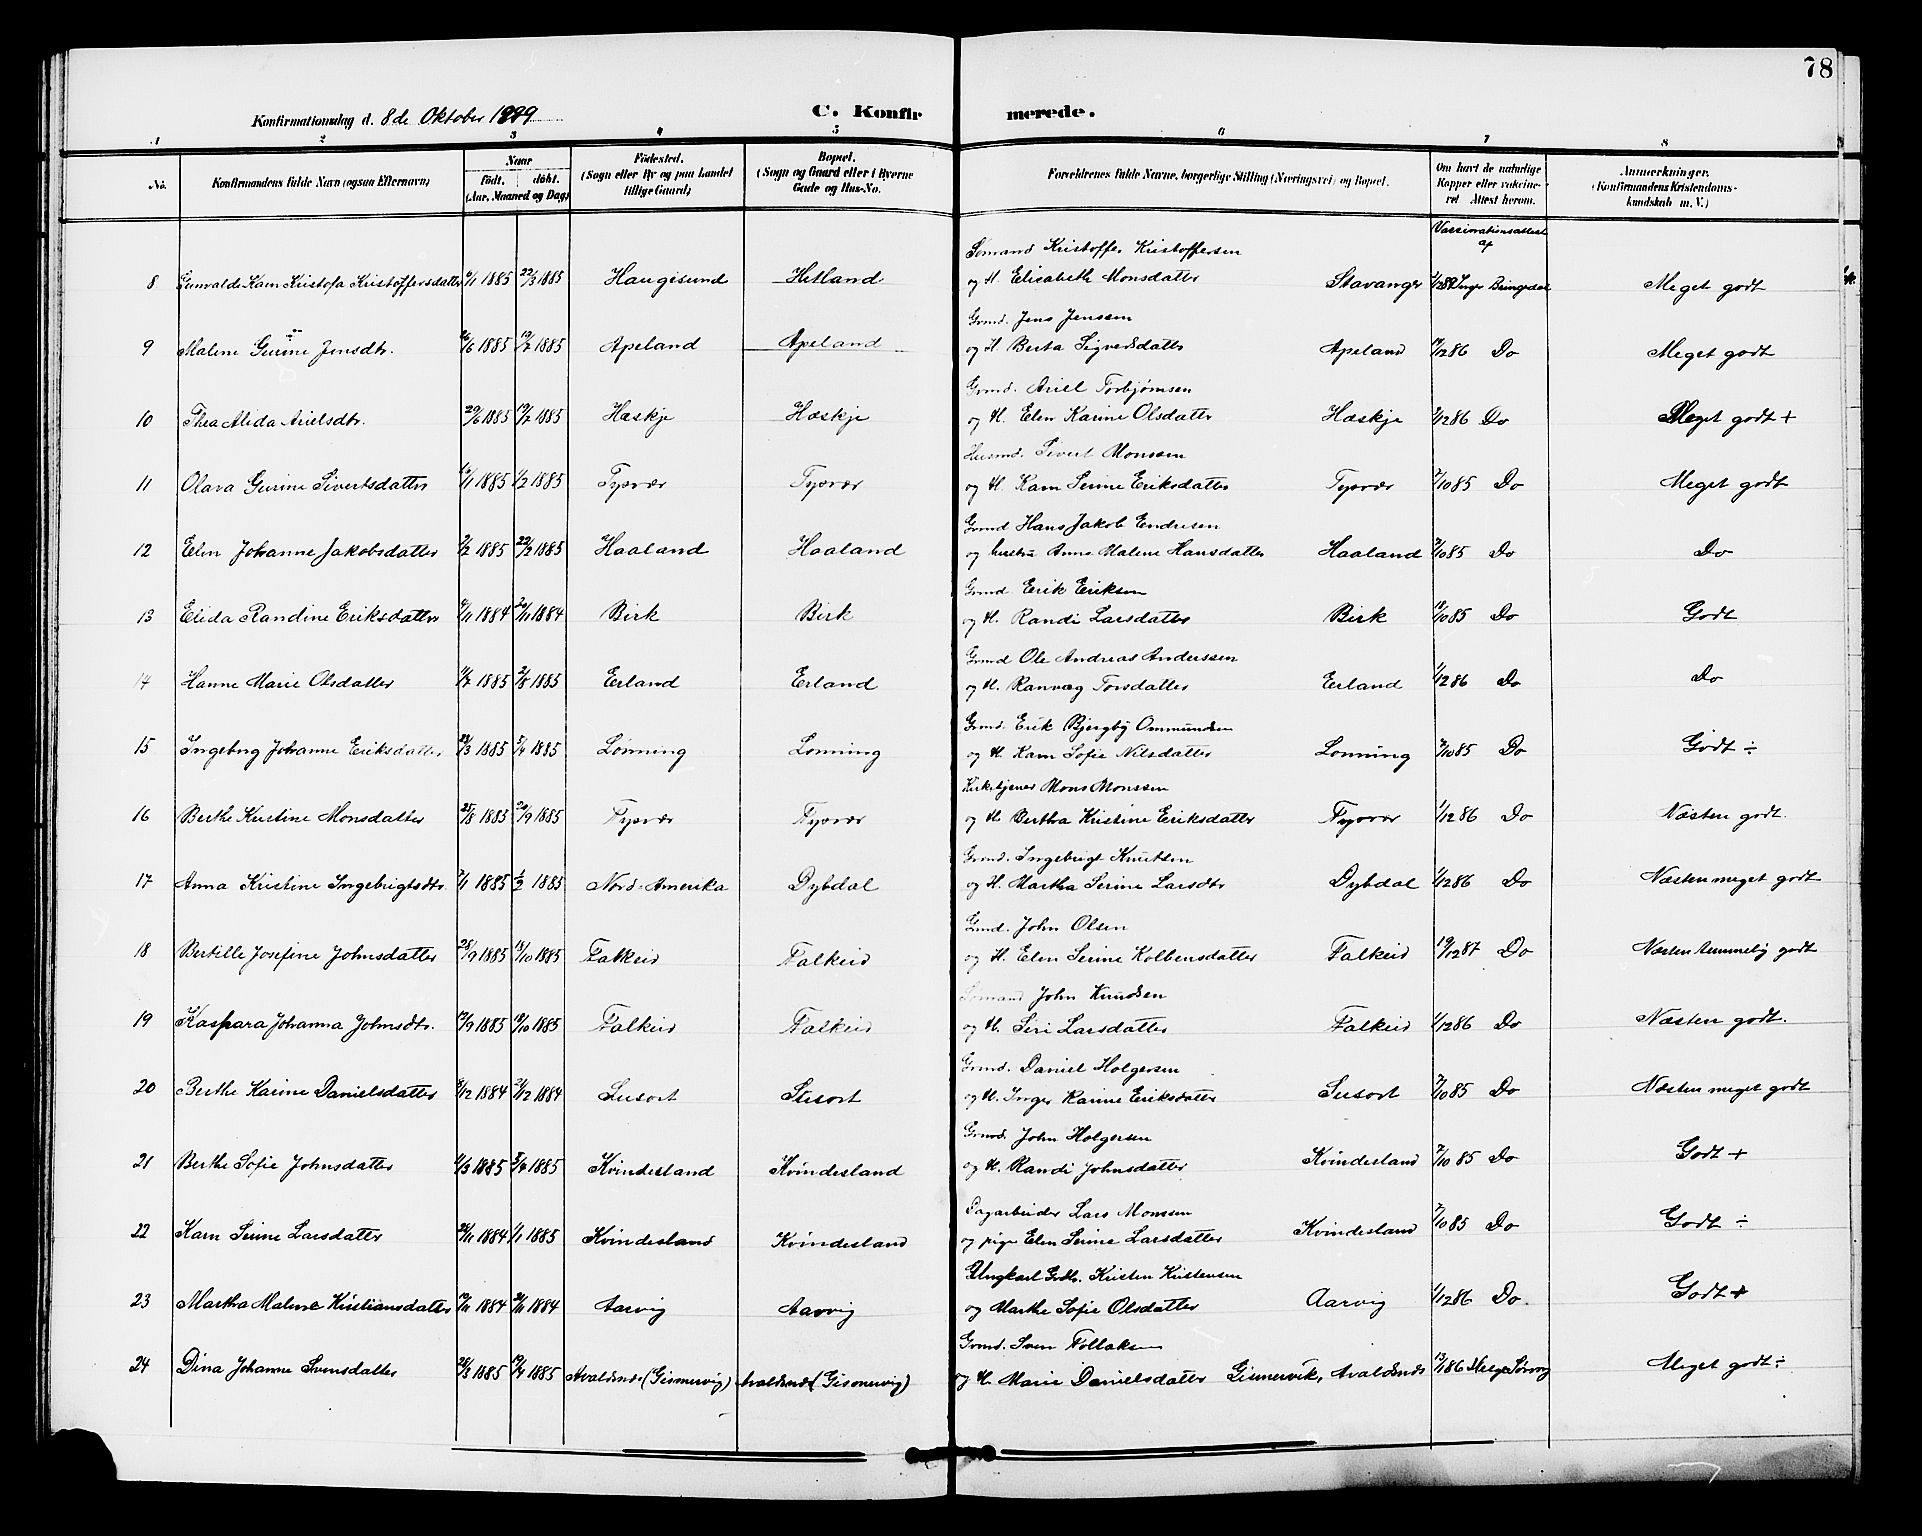 78
Konfirmationsdag d. 8de Oktober 1899
C. Konfirmerede.
1 2 3 4 5 6 7 8
No. Konfirmandens fulde Navn (ogsaa Efternavn) Naar födt. döbt. (Aar, Maaned og Dag) Födested. (Sogn eller By og paa Landet tillige Gaard) Bopæl. (Sogn og Gaard eller i Byerne Gade og Hus-No. Forældrenes fulde Navne, borgerlige Stilling (Næringsvei) og Bopæl. Om havt de naturlige Kopper eller vakcineret Attest herom. Anmærkninger. (Konfirmandens Kristendomskundskab m. V.)
Vaccinationsattest af
Sømand Kristoffer Kristoffersen
8 Gunvalda Karn Kristofa Kristoffersdatter 6/1 1885 22/3 1885 Haugesund Hetland og H. Elisabeth Monsdatter Stavanger Meget godt
Grmd. Jens Jenssen
9 Malene Gurine Jensdtr. 26/6 1885 19/7 1885 Apeland Apeland og H. Berta Sigvardsdatter Apeland 1286 Do Meget godt
Grmd. Ariel Torbjørnsen
10 Thea Alida Arielsdtr. 29/6 1885 19/7 1885 Hæskje Hæskje og H. Elen Karine Olsdatter Hæskje 1/1286 Do Meget godt +
Husmd. Sivert Monssen
11 Olava Gurine Sivertsdatter 10/1 1885 1/2 1885 Tysvær Tysvær og H. Karn Serine Eriksdatter Tysvær 7/1085 Do Meget godt
Grmd Hans Jakob Endresen
12 Elen Johanne Jakobsdatter 2/2 1885 22/2 1885 Haaland Haaland og hustru Anne Malene Hansdatter Haaland 7/1085 Do Do
Grmd Erik Eriksen
13 Elida Randine Eriksdatter 4/11 1884 /11 1884 Birk Birk og H. Randi Larsdatter Birk /1085 Do Godt
Grmd Ole Andreas Anderssen
14 Hanne Marie Olsdatter 1885 2/8 1885 Eerland Erland og H. Ranvæg Torsdatter Eerland 1/1286 Do Do
Grmd. Erik Bjergby Ommundsen
15 Ingeborg Johanne Eriksdatter 22/3 1885 5/4 1885 Lonning Lonning og H. Karn Sofie Nilsdatter Lonning 7/1085 Do Godt ÷
Kirketjener Mons Monssen
16 Berthe Kristine Monsdatter 25/8 1885 20/9 1885 Tysvær Tysvær og H. Bertha Kristine Eriksdatter Tysvær 1/1286 Do Næsten godt.
Grmd. Ingebrigt Knutsen
17 Anna Kristine Ingebrigtsdtr. 7/1 1885 1/2 1885 Nord-Amerika Dybdal og H. Martha Serine Larsdtr Dybdal 1/1286 Do Næsten meget godt
Grmd. John Olsen
18 Bertille Josefine Johnsdatter 28/9 1885 18/10 1885 Falkeid Falkeid og H. Elen Serine Kolbensdatter Falkeid 19/1287 Do Næsten temmelig godt
Sømand John Knudsen
19 Kaspara Johanna Johnsdtr. 12/9 1885 /10 1885 Falkeid Falkeid og H. Siri Larsdatter Falkeid 1/1286 Do Næsten godt.
Grmd. Daniel Holgersen
20 Berthe Karine Danielsdatter /12 1884 /12 1884 Susort Susort og H. Inger Karine Eriksdatter Susort 7/1085 Do Næsten meget godt
Grmd. John Holgersen
21 Berthe Sofie Johnsdatter /3 1885 5/4 1885 Kvindesland Kvindesland og H. Randi Johnsdatter Kvindesland 7/1085 Do Godt +
Dagarbeider Lars Monsen
22 Karn Serine Larsdatter /11 1884 1/1 1885 Kvindesland Kvindesland og pige Elen Serine Larsdatter Kvindesland 7/1085 Do Godt ÷
Ungkarl Kristen Kristensen
23 Martha Malene Kristiansdatter /11 1884 /11 1884 Aarvig Aarvig og Marthe Sofie Olsdatter Aarvig 1/1286 Do. Godt +
Grmd. Sven Tollaksen
24 Dina Johanne Svensdatter /3 1885 19/4 1885 Avaldsnes (Gismervig) Avaldsnes (Gismervig) og H. Marie Danielsdatter Gismervik, Avaldsnes 13/186 Meget godt ÷